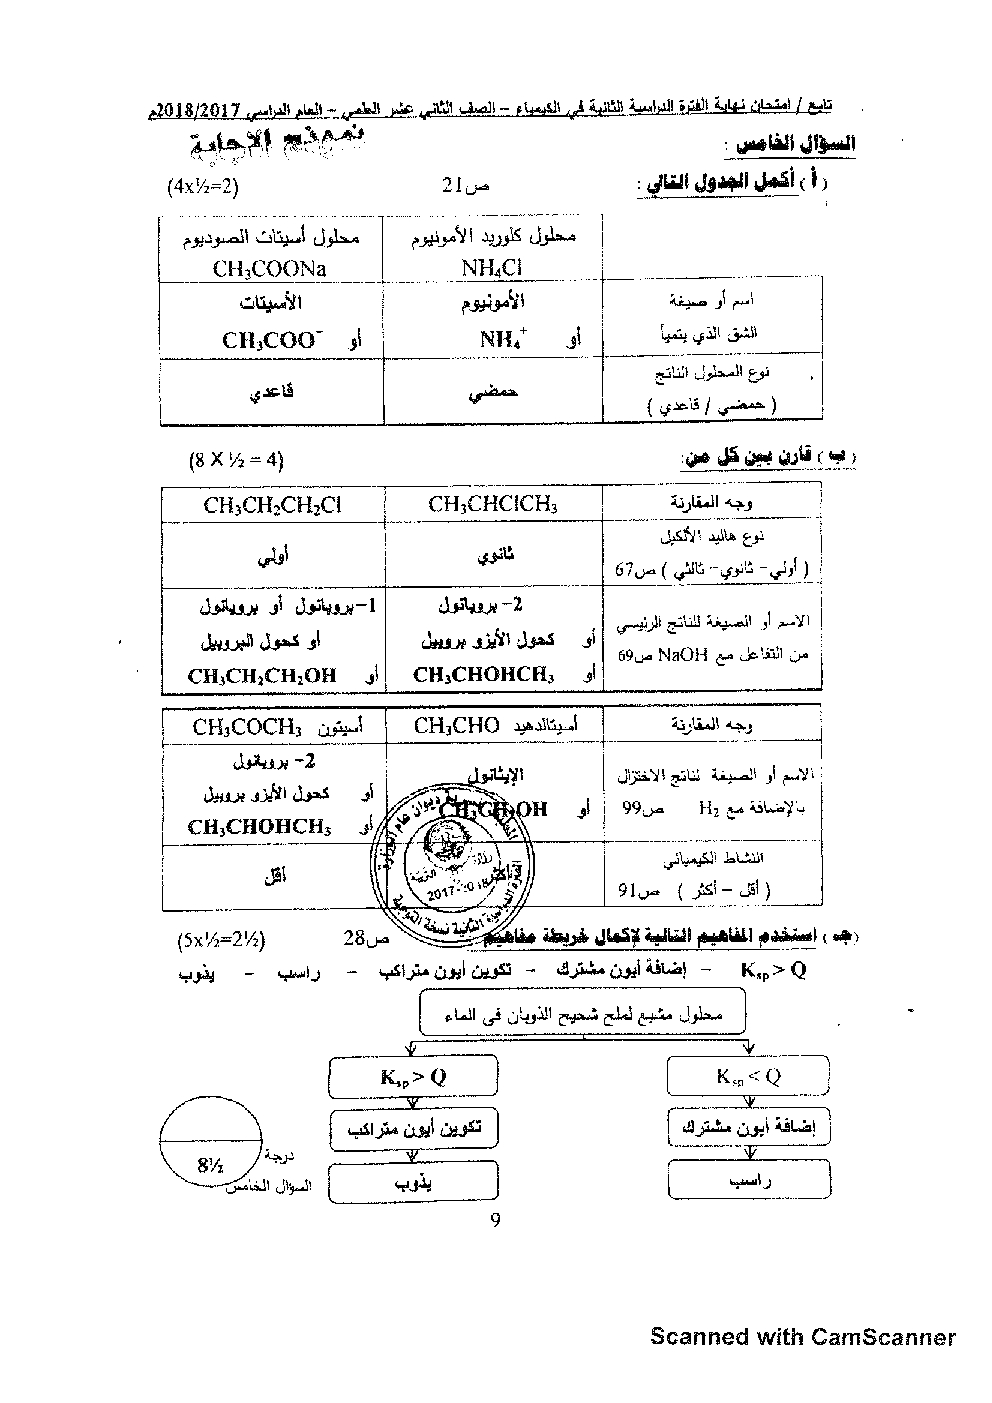 تابع / امتحان نهاية الفترة الدراسية الثانية في الكيمياء – الصف الثاني عشر العلمي – العام الدراسي 2018/2017م
نموذج الإجابة
السؤال الخامس :
( أ ) أكمل الجدول التالي : ص21 (4x½=2)
محلول كلوريد الأمونيوم محلول أسيتات الصوديوم
NH₄Cl CH₃COONa
اسم أو صيغة الأمونيوم الأسيتات
الشق الذي يتميأ أو NH₄⁺ أو CH₃COO⁻
نوع المحلول الناتج حمضي قاعدي
( حمضي / قاعدي )
( ب ) قارن بين كل من: (8 X ½ = 4)
وجه المقارنة CH₃CHClCH₃ CH₃CH₂CH₂Cl
نوع هاليد الألكيل ثانوي أولي
( أولي- ثانوي- ثالثي ) ص67
الاسم أو الصيغة للناتج الرئيسي 2- بروبانول 1-بروبانول أو بروبانول
من التفاعل مع NaOH ص69 أو كحول الأيزو بروبيل أو كحول البروبيل
أو CH₃CHOHCH₃ أو CH₃CH₂CH₂OH
وجه المقارنة أسيتالدهيد CH₃CHO أسيتون CH₃COCH₃
الاسم أو الصيغة لناتج الاختزال الإيثانول 2- بروبانول
بالإضافة مع H₂ ص99 أو CH₃CH₂OH أو كحول الأيزو بروبيل
أو CH₃CHOHCH₃
النشاط الكيميائي أكثر أقل
( أقل – أكثر ) ص91
2017-2018
( جـ ) استخدم المفاهيم التالية لإكمال خريطة مفاهيم ص28 (5x½=2½)
Ksp> Q – إضافة أيون مشترك – تكوين أيون متراكب – راسب – يذوب
محلول مشبع لملح شحيح الذوبان في الماء
Ksp < Q Ksp > Q
إضافة أيون مشترك تكوين أيون متراكب
راسب يذوب
8½
درجة
السؤال الخامس
9
Scanned with CamScanner